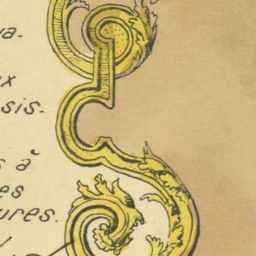 a.
x
sis.
s à
es
ures.